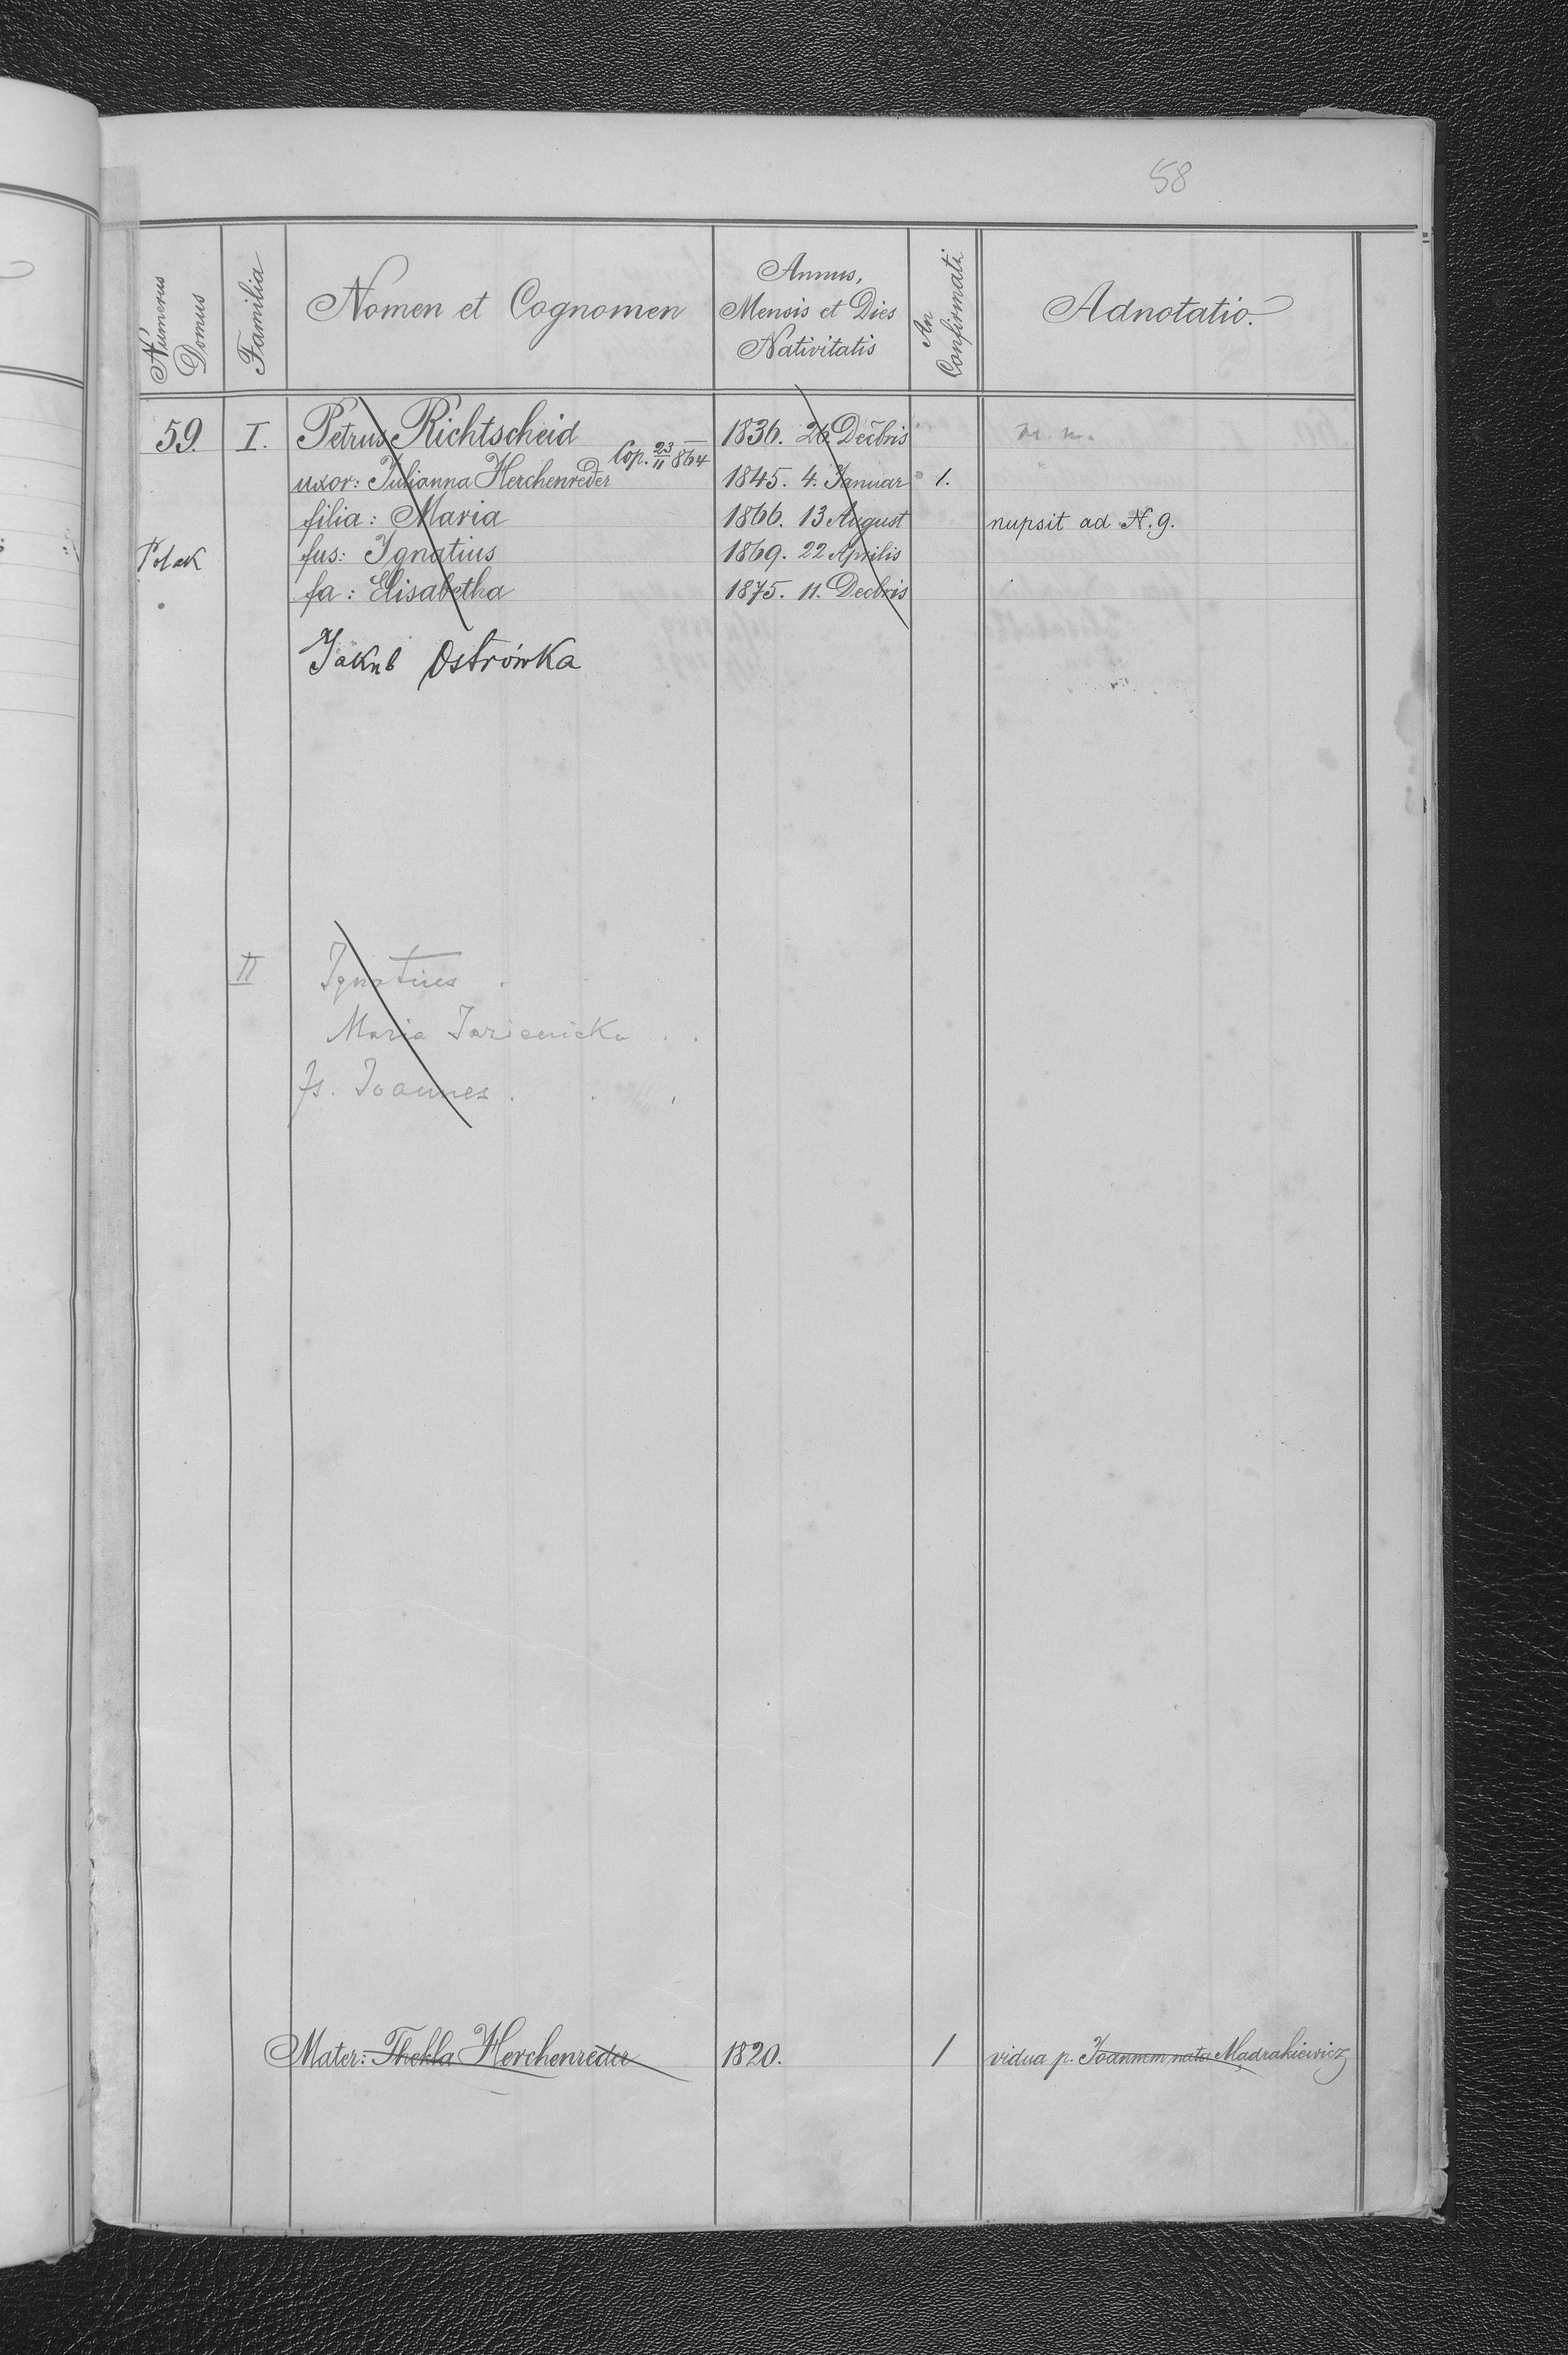 58
Numerus Domus Familia Nomen et Cognomen Annus, Mensis et Dies Nativitatis An Confirmati Adnotatio.
59. I. Petrus Richtscheid Cop. 23/11 864 1836. 26. Decbris m. n.
uxor: Julianna Herchenreder 1845. 4. Januar 1.
filia: Maria 1866. 13 August nupsit ad N. 9.
Polak fus: Ignatius 1869. 22 Aprilis
fa: Elisabetha 1875. 11. Decbris
Jakub Ostrówka
II Ignatius
Maria
fs. Joannes
Mater: Thekla Herchenreder 1820. 1 vidua p. Joannem nata Mądrakiewicz